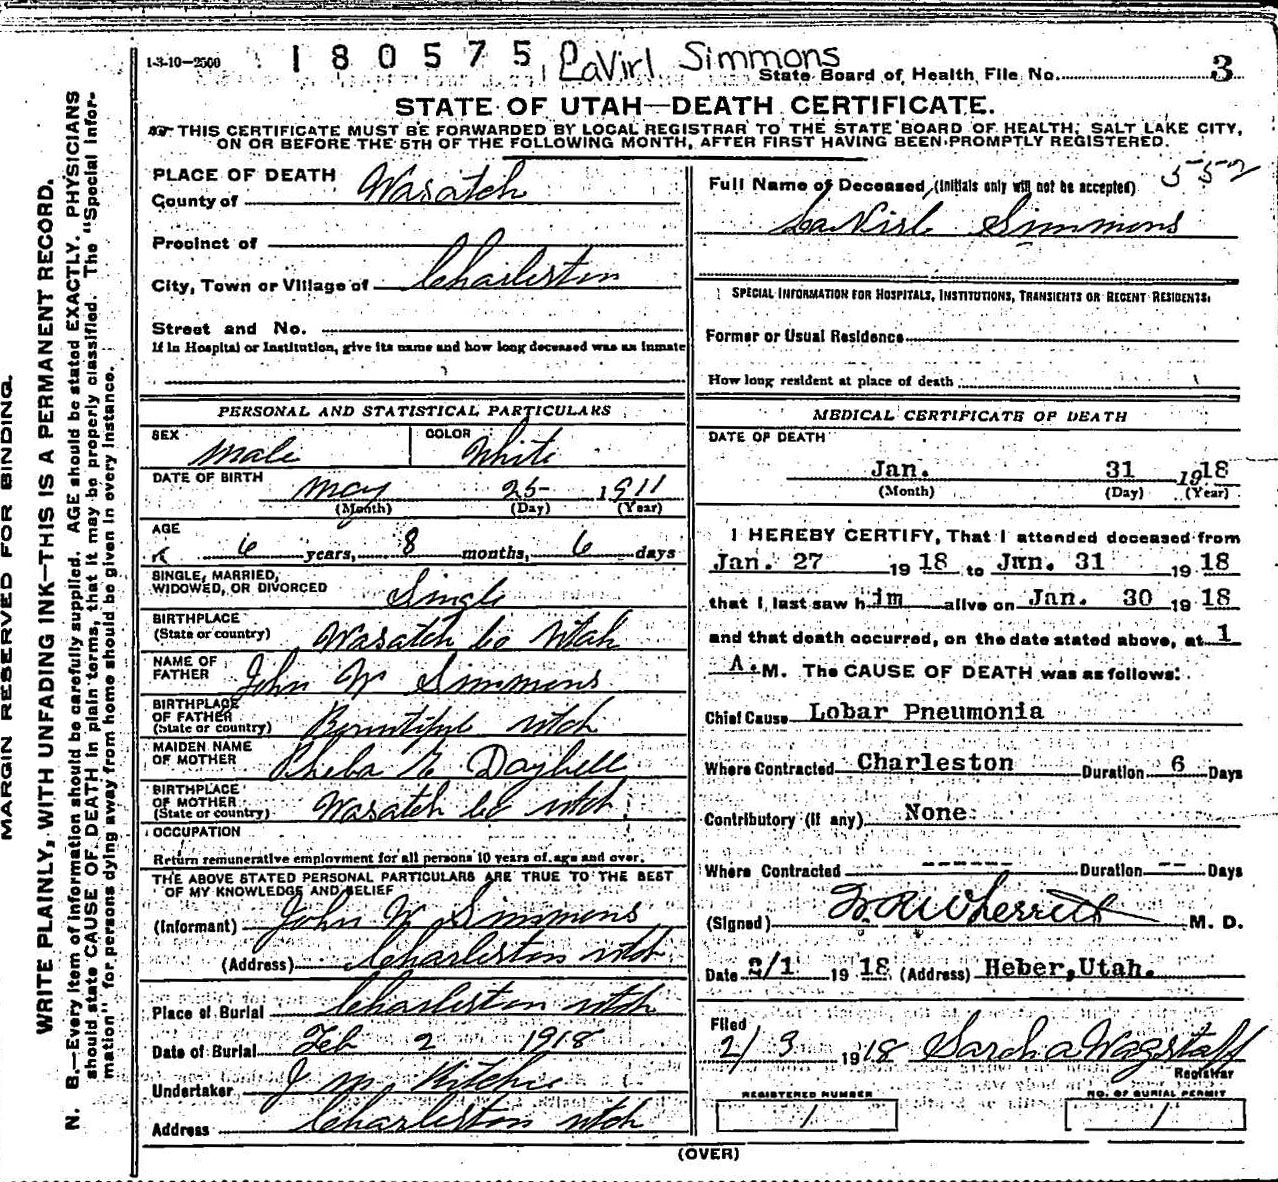 1-3-10—2500
180575
LaVirl Simmons
State Board of Health File No. 3
STATE OF UTAH—DEATH CERTIFICATE.
THIS CERTIFICATE MUST BE FORWARDED BY LOCAL REGISTRAR TO THE STATE BOARD OF HEALTH, SALT LAKE CITY,
ON OR BEFORE THE 5TH OF THE FOLLOWING MONTH, AFTER FIRST HAVING BEEN PROMPTLY REGISTERED.
PLACE OF DEATH
County of Wasatch
Precinct of
City, Town or Village of Charleston
Street and No.
If in Hospital or Institution, give its name and how long deceased was an inmate
PERSONAL AND STATISTICAL PARTICULARS
SEX Male COLOR White
DATE OF BIRTH May 25 1911
(Month) (Day) (Year)
AGE
6 years, 8 months, 6 days
SINGLE, MARRIED,
WIDOWED, OR DIVORCED Single
BIRTHPLACE
(State or country) Wasatch Co Utah
NAME OF
FATHER John W Simmons
BIRTHPLACE
OF FATHER
(State or country) Bountiful Utah
MAIDEN NAME
OF MOTHER Pheba E Daybell
BIRTHPLACE
OF MOTHER
(State or country) Wasatch Co Utah
OCCUPATION
Return remunerative employment for all persons 10 years of age and over.
THE ABOVE STATED PERSONAL PARTICULARS ARE TRUE TO THE BEST
OF MY KNOWLEDGE AND BELIEF
(Informant) John W. Simmons
(Address) Charleston Utah
Place of Burial Charleston Utah
Date of Burial Feb 2 1918
Undertaker J M Ritchie
Address Charleston Utah
552
Full Name of Deceased (Initials only will not be accepted)
LaVirl Simmons
SPECIAL INFORMATION FOR HOSPITALS, INSTITUTIONS, TRANSIENTS OR RECENT RESIDENTS.
Former or Usual Residence
How long resident at place of death
MEDICAL CERTIFICATE OF DEATH
DATE OF DEATH
Jan. 31 1918
(Month) (Day) (Year)
I HEREBY CERTIFY, That I attended deceased from
Jan. 27 1918 to Jan. 31 1918
that I last saw him alive on Jan. 30 1918
and that death occurred, on the date stated above, at 1
A.M. The CAUSE OF DEATH was as follows:
Chief Cause Lobar Pneumonia
Where Contracted Charleston Duration 6 Days
Contributory (if any) None
Where Contracted ------- Duration -- Days
(Signed) W.R. Wherritt M. D.
Date 2/1 1918 (Address) Heber, Utah.
Filed
2/3 1918 Sarah a Wagstaff
Registrar
REGISTERED NUMBER
1
NO. OF BURIAL PERMIT
1
(OVER)
MARGIN RESERVED FOR BINDING.
WRITE PLAINLY, WITH UNFADING INK—THIS IS A PERMANENT RECORD.
N. B.—Every item of information should be carefully supplied. AGE should be stated EXACTLY. PHYSICIANS
should state CAUSE OF DEATH in plain terms, that it may be properly classified. The "Special Infor-
mation" for persons dying away from home should be given in every instance.